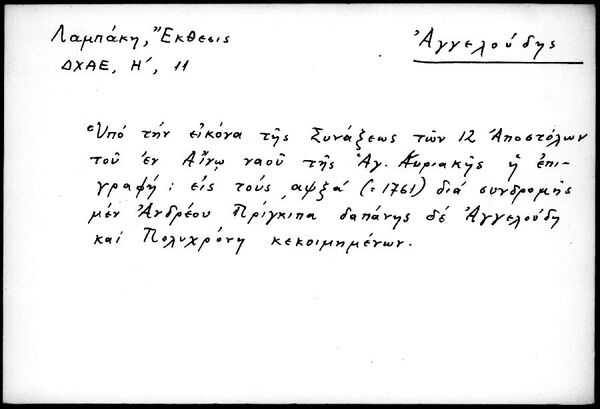 Λαμπάκη, Ἔκθεσις
ΔΧΑΕ, Η', 11
Ἀγγελούδης
Ὑπό τήν εἰκόνα τῆς Συνάξεως τῶν 12 Ἀποστόλων
τοῦ ἐν Αἴνῳ ναοῦ τῆς Ἁγ. Κυριακῆς ἡ ἐπι-
γραφή: εἰς τούς ͵αψξά (=1761) διά συνδρομῆς
μέν Ἀνδρέου Πρίγκιπα δαπάνης δέ Ἀγγελούδη
καί Πολυχρόνη κεκοιμημένων.